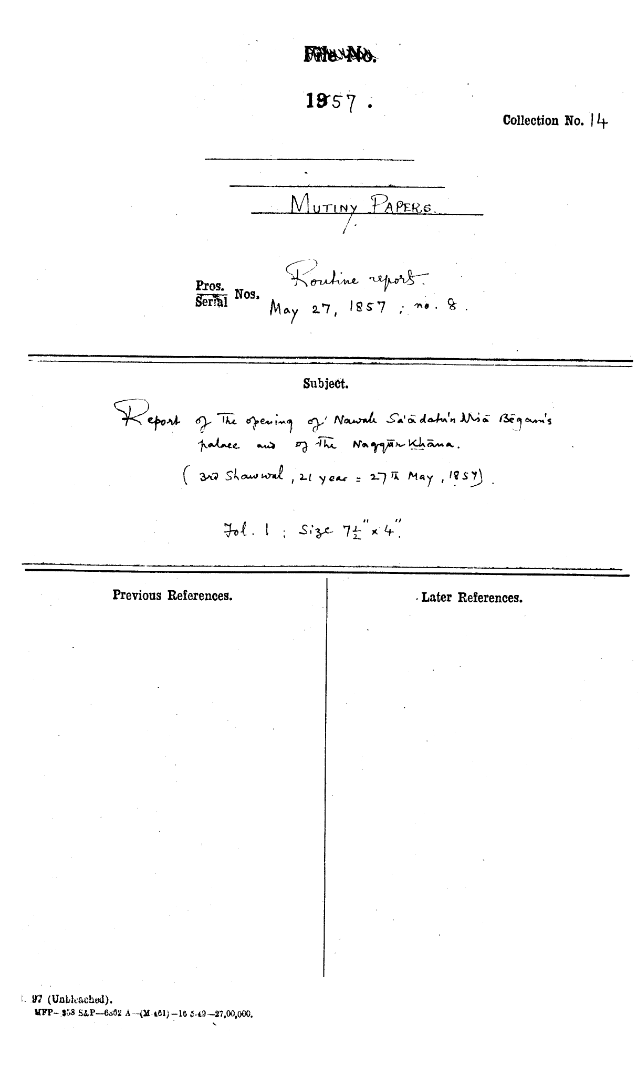 File No.
1857.
Collection No. 14
MUTINY PAPERS.
Pros. Serial Nos.
Routine report.
May 27, 1857; no. 8.
Subject.
Report of The opening of Nawab Sa'ādatu'n Nisā Bēgam's
palace and of The Naqqār Khāna.
(3rd Shawwal, 21 year = 27th May, 1857).
Fol. 1; Size 7½" x 4".
Previous References.
Later References.
97 (Unbleached).